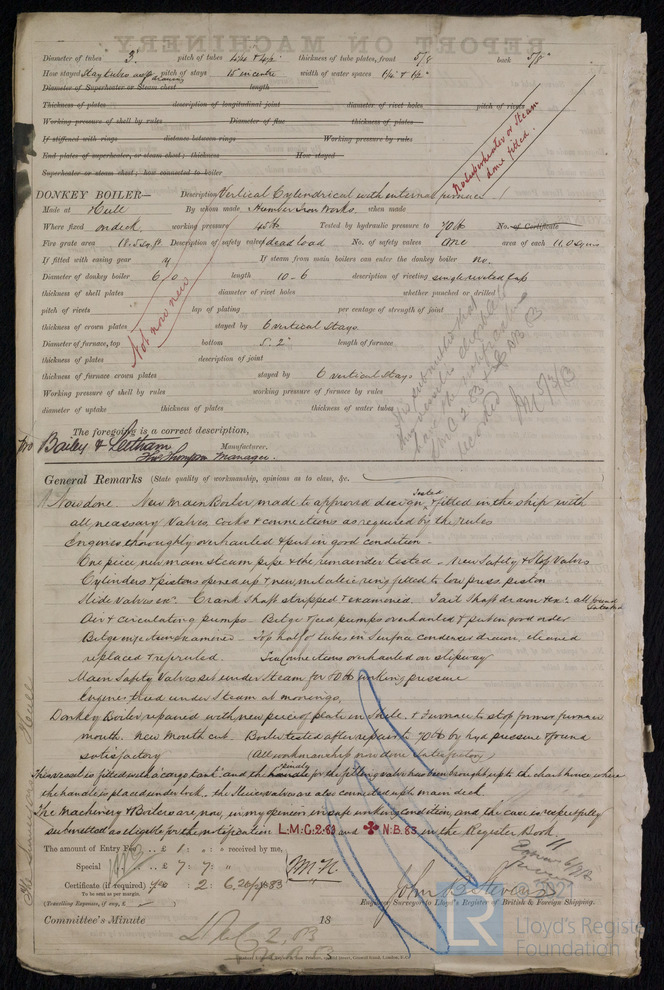 REPORT ON MACHINERY.
Diameter of tubes 3" pitch of tubes thickness of tube plates, front 5/8 back 5/8"
How stayed Stay tubes as per drawing pitch of stays 15 in centre width of water spaces
Diameter of Superheater or Steam chest length
Thickness of plates description of longitudinal joint diameter of rivet holes pitch of rivets
Working pressure of shell by rules Diameter of flue thickness of plates
If stiffened with rings distance between rings Working pressure by rules
End plates of superheater, or steam chest; thickness How stayed
Superheater or steam chest; how connected to boiler
No superheater or steam dome fitted.
DONKEY BOILER— Description Vertical Cylindrical with internal furnace
Made at Hull By whom made Humber Iron Works when made
Where fixed on deck. working pressure 45 lb Tested by hydraulic pressure to 70 lb No. of Certificate
Fire grate area 18.5 sq. ft. Description of safety valves dead load No. of safety valves one area of each 11.0 sq ins
If fitted with easing gear y If steam from main boilers can enter the donkey boiler no.
Diameter of donkey boiler 6/0 length 10-6 description of riveting single riveted lap
thickness of shell plates diameter of rivet holes whether punched or drilled
pitch of rivets lap of plating per centage of strength of joint
thickness of crown plates stayed by 6 vertical stays.
Diameter of furnace, top bottom 5. 2" length of furnace
thickness of plates description of joint
thickness of furnace crown plates stayed by 6 vertical stays
Working pressure of shell by rules working pressure of furnace by rules
diameter of uptake thickness of plates thickness of water tubes
Not now new
The foregoing is a correct description,
pro Bailey & Leetham Manufacturer.
Thos Thompson Manager.
General Remarks (State quality of workmanship, opinions as to class, &c.
Now done. New Main Boiler made to approved design, tested & fitted in the ship with
all necessary valves, cocks & connections as required by the rules
Engines thoroughly overhauled & put in good condition.
One piece, new main steam pipe & the remainder tested. New Safety & Stop Valves
Cylinders & pistons opened up & new metallic rings fitted to low press. piston
Slide valves exd. Crank Shaft stripped & examined. Tail Shaft drawn & exd. all found satisfactory
Air & circulating pumps. Bilge & feed pumps overhauled & put in good order
Bilge injection examined. Top half of tubes in Surface Condenser drawn, cleaned
replaced & referruled. Sea Connections overhauled on slipway
Main Safety Valves set under Steam for 80 lb working pressure
Engines tried under Steam at moorings.
Donkey Boiler repaired with new piece of plate in Shell. & Furnace to stop former furnace
mouth. New Mouth cut. Boiler tested after repairs to 70 lb by hyd pressure & found
satisfactory (All workmanship now done satisfactory)
This vessel is fitted with a cargo tank and the handle for the filling valve has been brought up to the chart house where
the handle is placed under lock. the Sluice valves are also connected up to main deck.
The Machinery & Boilers are now, in my opinion in safe working condition, and the case is respectfully
submitted as eligible for the notification L.M.C. 2.83 and N.B. 83. in the Register Book.
The amount of Entry Fee .. £ 1 : " : " received by me,
Special .. £ 7 : 7 : "
Certificate (if required) : 2 : 6.
To be sent as per margin.
(Travelling Expenses, if any, £ )
John B Stevens
Engineer Surveyor to Lloyd's Register of British & Foreign Shipping.
Committee's Minute 18
LMC 2,83
LR Lloyd's Register
Foundation